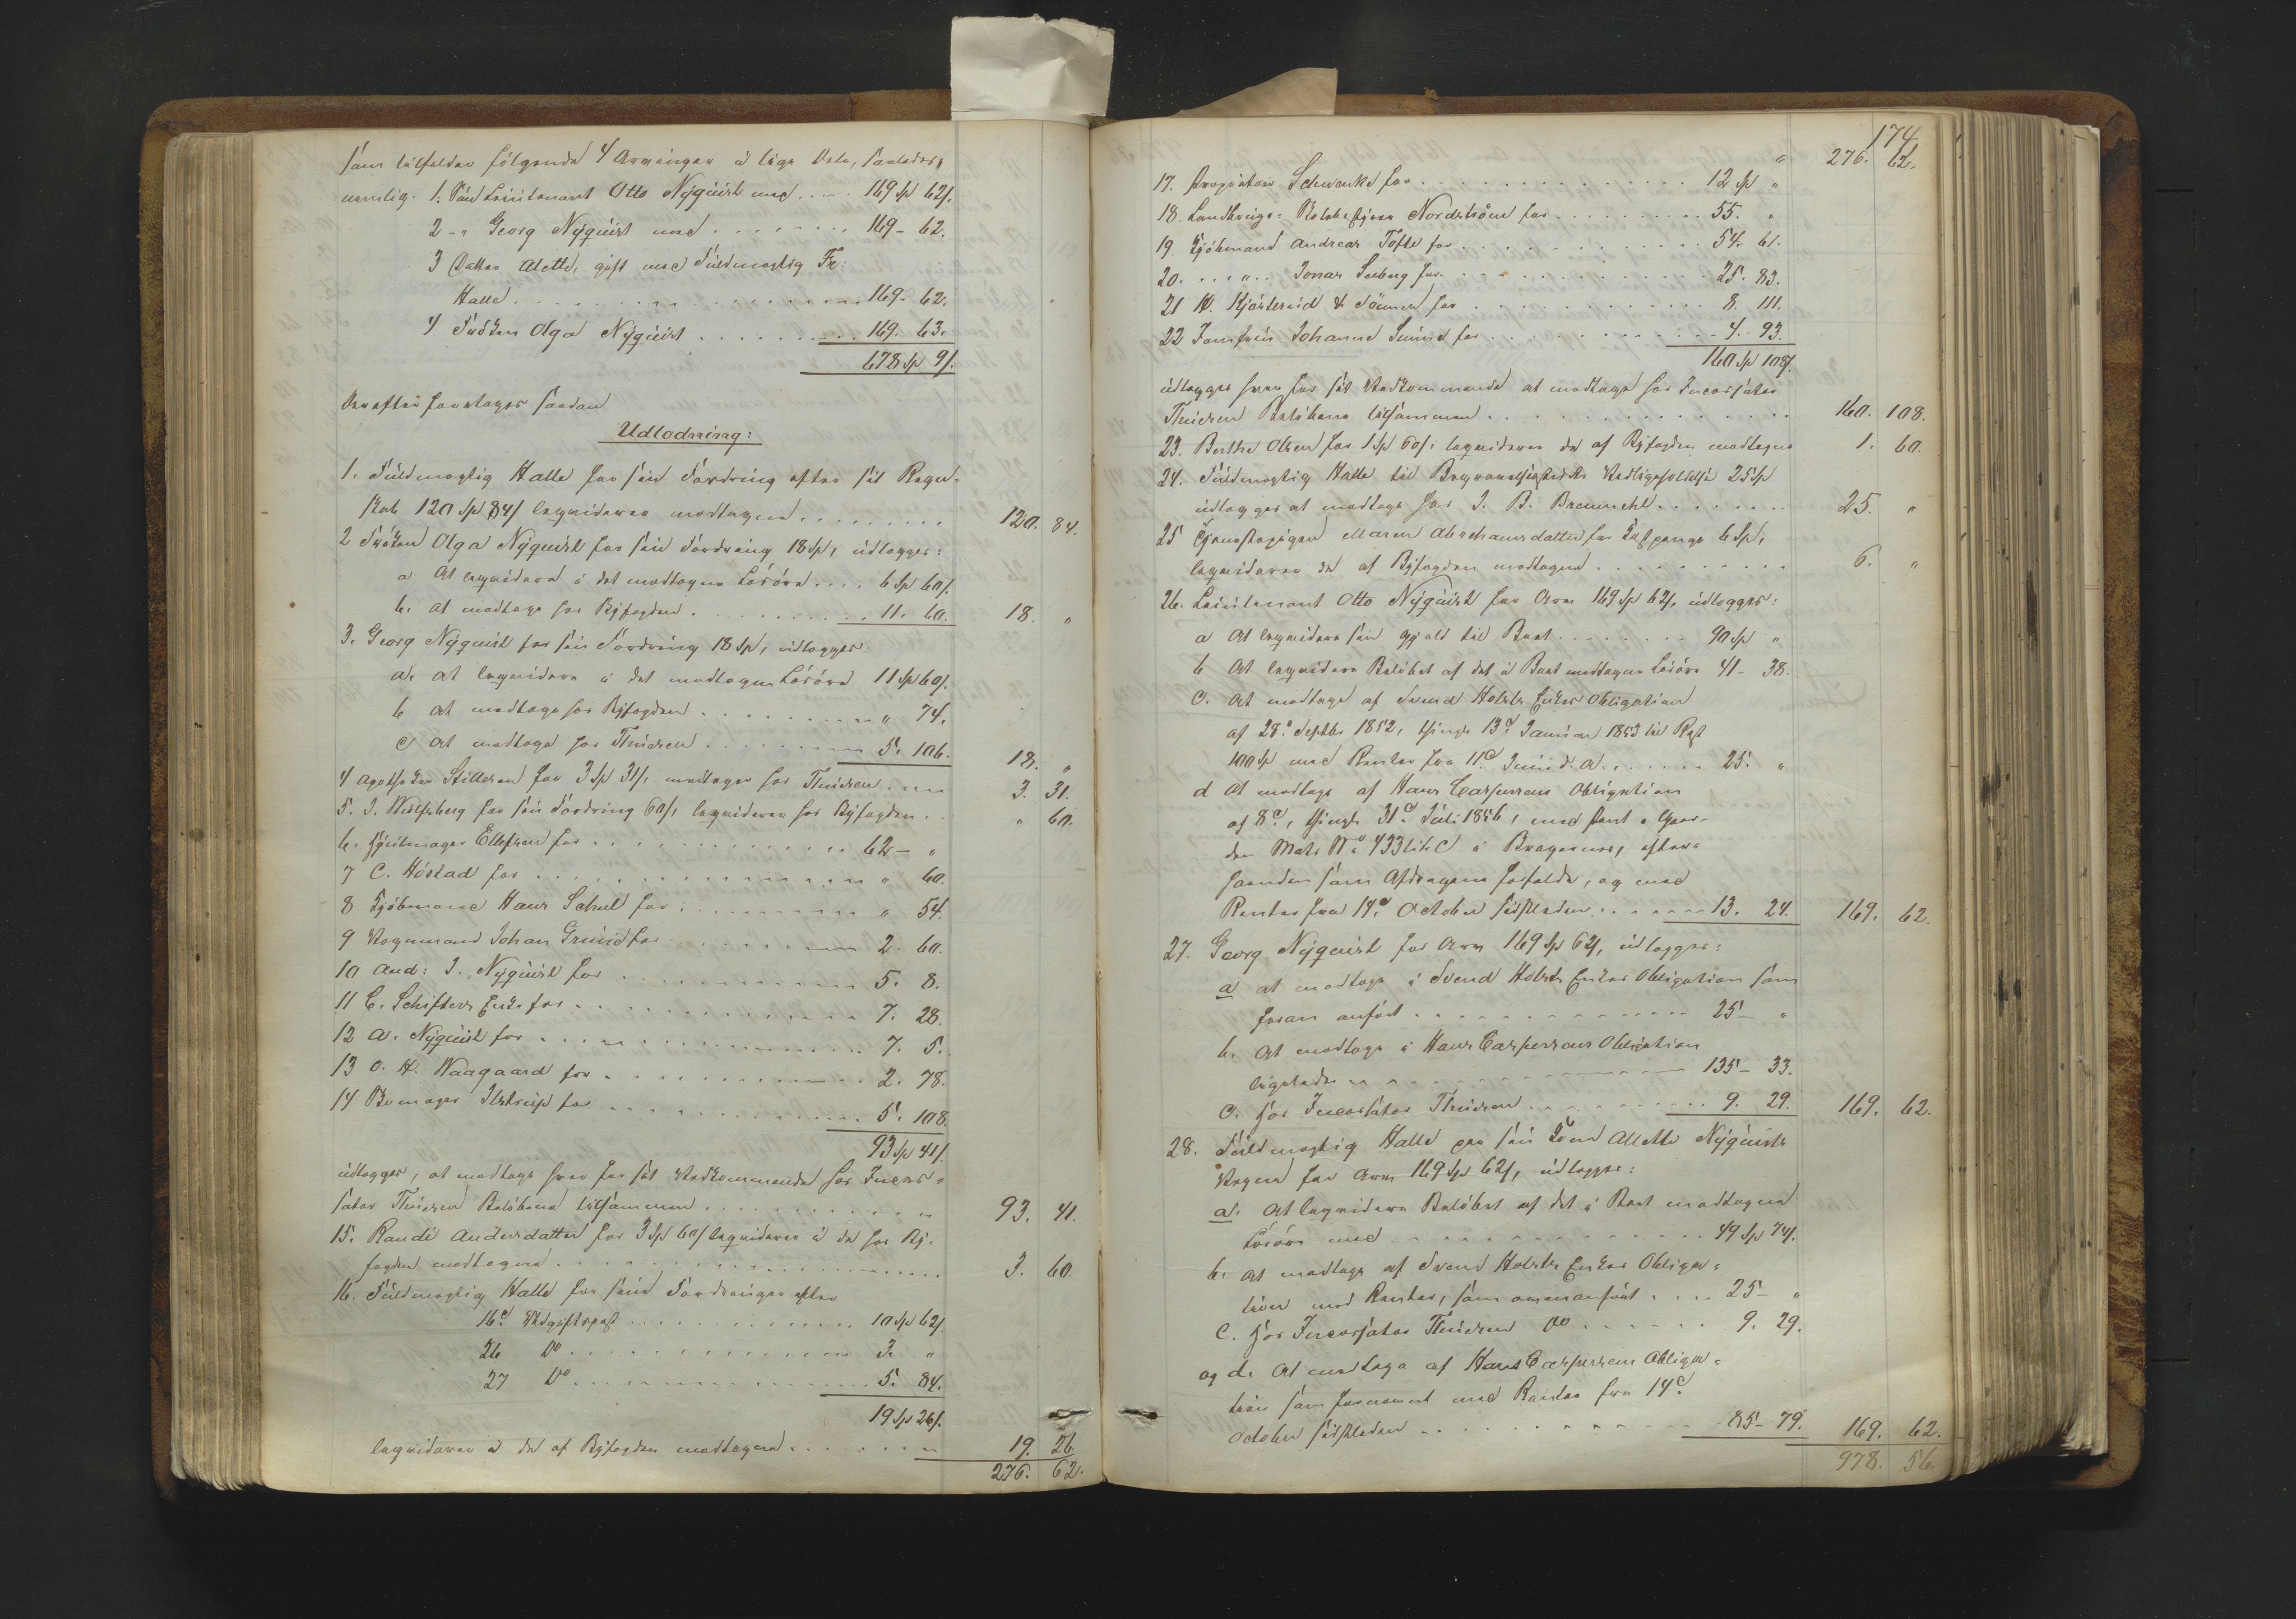 som tilfalder følgende 4 Arvinger i lige Dele, saaledes,
nemlig: 1. Søn Lieutenant Otto Nÿquist med .... 169 Sp 62 s.
2 - " Georg Nÿquist med ....... 169 - 62.
3 Datter Alette, gift med Fuldmægtig Fr:
Halle ............ 169 - 62.
4 Frøken Olga Nÿquist ......... 169. 63.
678 Sp 9 s.
Derefter foretages saadan
Udlodning:
1. Fuldmægtig Halle for sin Fordring efter sit Regn-
skab 120 Sp 84 s liqvideres modtagne ........ 120. 84.
2 Frøken Olga Nÿquist for sin Fordring 18 Sp, udlægges:
a At liqvidere i det modtagne Løsøre .... 6 Sp 60 s.
b. at modtage hos Bÿfogden ......... 11. 60. 18. "
3. Georg Nÿquist for sin Fordring 18 Sp, udlægges
a. at liqvidere i det modtagne Løsøre 11 Sp 60 s.
b at modtage hos Bÿfogden ......... " 74.
c at modtage hos Thuesen ........ 5. 106. 18. "
4 Apotheker Stillesen for 3 Sp 31 s, modtages hos Thuesen ... 3. 31.
5. J. Wulfsberg for sin Fordring 60 s, liqvideres hos Bÿfogden .. " 60.
6. Hjulmager Ellefsen for ............ 62 - "
7 C. Høstad for ............ " 60.
8 Kjøbmand Hans Schul for ......... " 54.
9 Vognmand Johan Gruud for ........ 2. 60.
10 And: J. Nÿquist for ......... 5. 8.
11 C. Schifters Enke for .......... 7. 28.
12 A. Nÿquist for ............. 7. 5.
13 O. H. Waagaard for ......... 2. 78.
14 Bomager Ilstrup for ......... 5. 108.
93 Sp 41 s.
udlægges, at modtage hver for sit Vedkommende hos Incas-
sator Thuesen Beløbene tilsammen ......... 93. 41.
15. Randi Andersdatter for 3 Sp 60 s liqvideres i de hos Bÿ-
fogden modtagne ............ 3. 60
16. Fuldmægtig Halle for sine Fordringer efter
16d Udgiftspost ......... 10 Sp 62 s.
26 Do ............ 3. "
27 Do ............ 5. 84.
19 Sp 26 s.
liqvideres i de af Bÿfogden modtagne ....... 19. 26
276. 62.
174
" 276. 62.
17. Proprietair Schwenke for ............ 12 Sp "
18. Landhvings- Nordstrøm for ......... 55. "
19. Kjøbmand Andreas Tofte for ......... 54. 61.
20. ... " .. Jonas Seeberg for ......... 25. 83.
21 H. Kjøsterud & Sønner for ......... 8. 111.
22 Jomfru Johanne Smind for ......... 4. 93.
160 Sp 108 s.
udlægges hver for sit Vedkommende at modtage hos Incassator
Thuesen Beløbene tilsammen ............ 160. 108.
23. Berthe Olsen for 1 Sp 60 s, liqvideres de af Bÿfogden modtagne 1. 60.
24. Fuldmægtig Halle til Begravelsesstedets Vedligeholdelse 25 Sp
udlægges at modtage hos J. B. Breunehl ....... 25. "
25 Tjenestepigen Maren Abrahamsdatter for Kostpenge 6 Sp,
liqvideres de af Bÿfogden modtagne ......... 6. "
26. Lieutenant Otto Nÿquist for Arv 169 Sp 62 s, udlægges:
a At liqvidere sin Gjæld til Boet ........ 90 Sp "
b At liqvidere Beløbet af det i Boet modtagne Løsøre 41 - 38.
c. At modtage af Svend Holsts Enkes Obligation
af 28d Septbr 1852, thingl. 13d Januar 1853 til Rest
100 Sp med Renter fra 11d Juni d. A. ...... 25. "
d At modtage af Hans Caspersens Obligation
af 8d, thingl. 31d Juli 1856, med Pant i Gaar-
den Matr No 433 litr C i Bragernes, efter-
haanden som Afdragene forfalde, og med
Renter fra 14d October sidstleden ...... 13. 24. 169. 62.
27. Georg Nÿquist for Arv 169 Sp 62 s, udlægges:
a at modtage i Svend Holsts Enkes Obligation som
foran anført ............. 25 - "
b. At modtage i Hans Caspersens Obligation
ligeledes ............ 135 - 33.
c. hos Incassator Thuesen ......... 9. 29. 169. 62.
28. Fuldmægtig Halle paa sin Kone Alette Nÿquists
Vegne for Arv 169 Sp 62 s, udlægges:
a. At liqvidere Beløbet af det i Boet modtagne
Løsøre med ............ 49 Sp 74 s.
b. At modtage af Svend Holsts Enkes Obliga-
tion med Renter, som ommanført .... 25 - "
c. hos Incassator Thuesen Do ...... 9. 29.
og d. At modtage af Hans Caspersens Obliga-
tion som fornævnt med Renter fra 14d
October sidstleden ......... 85 - 79. 169. 62.
978. 56.